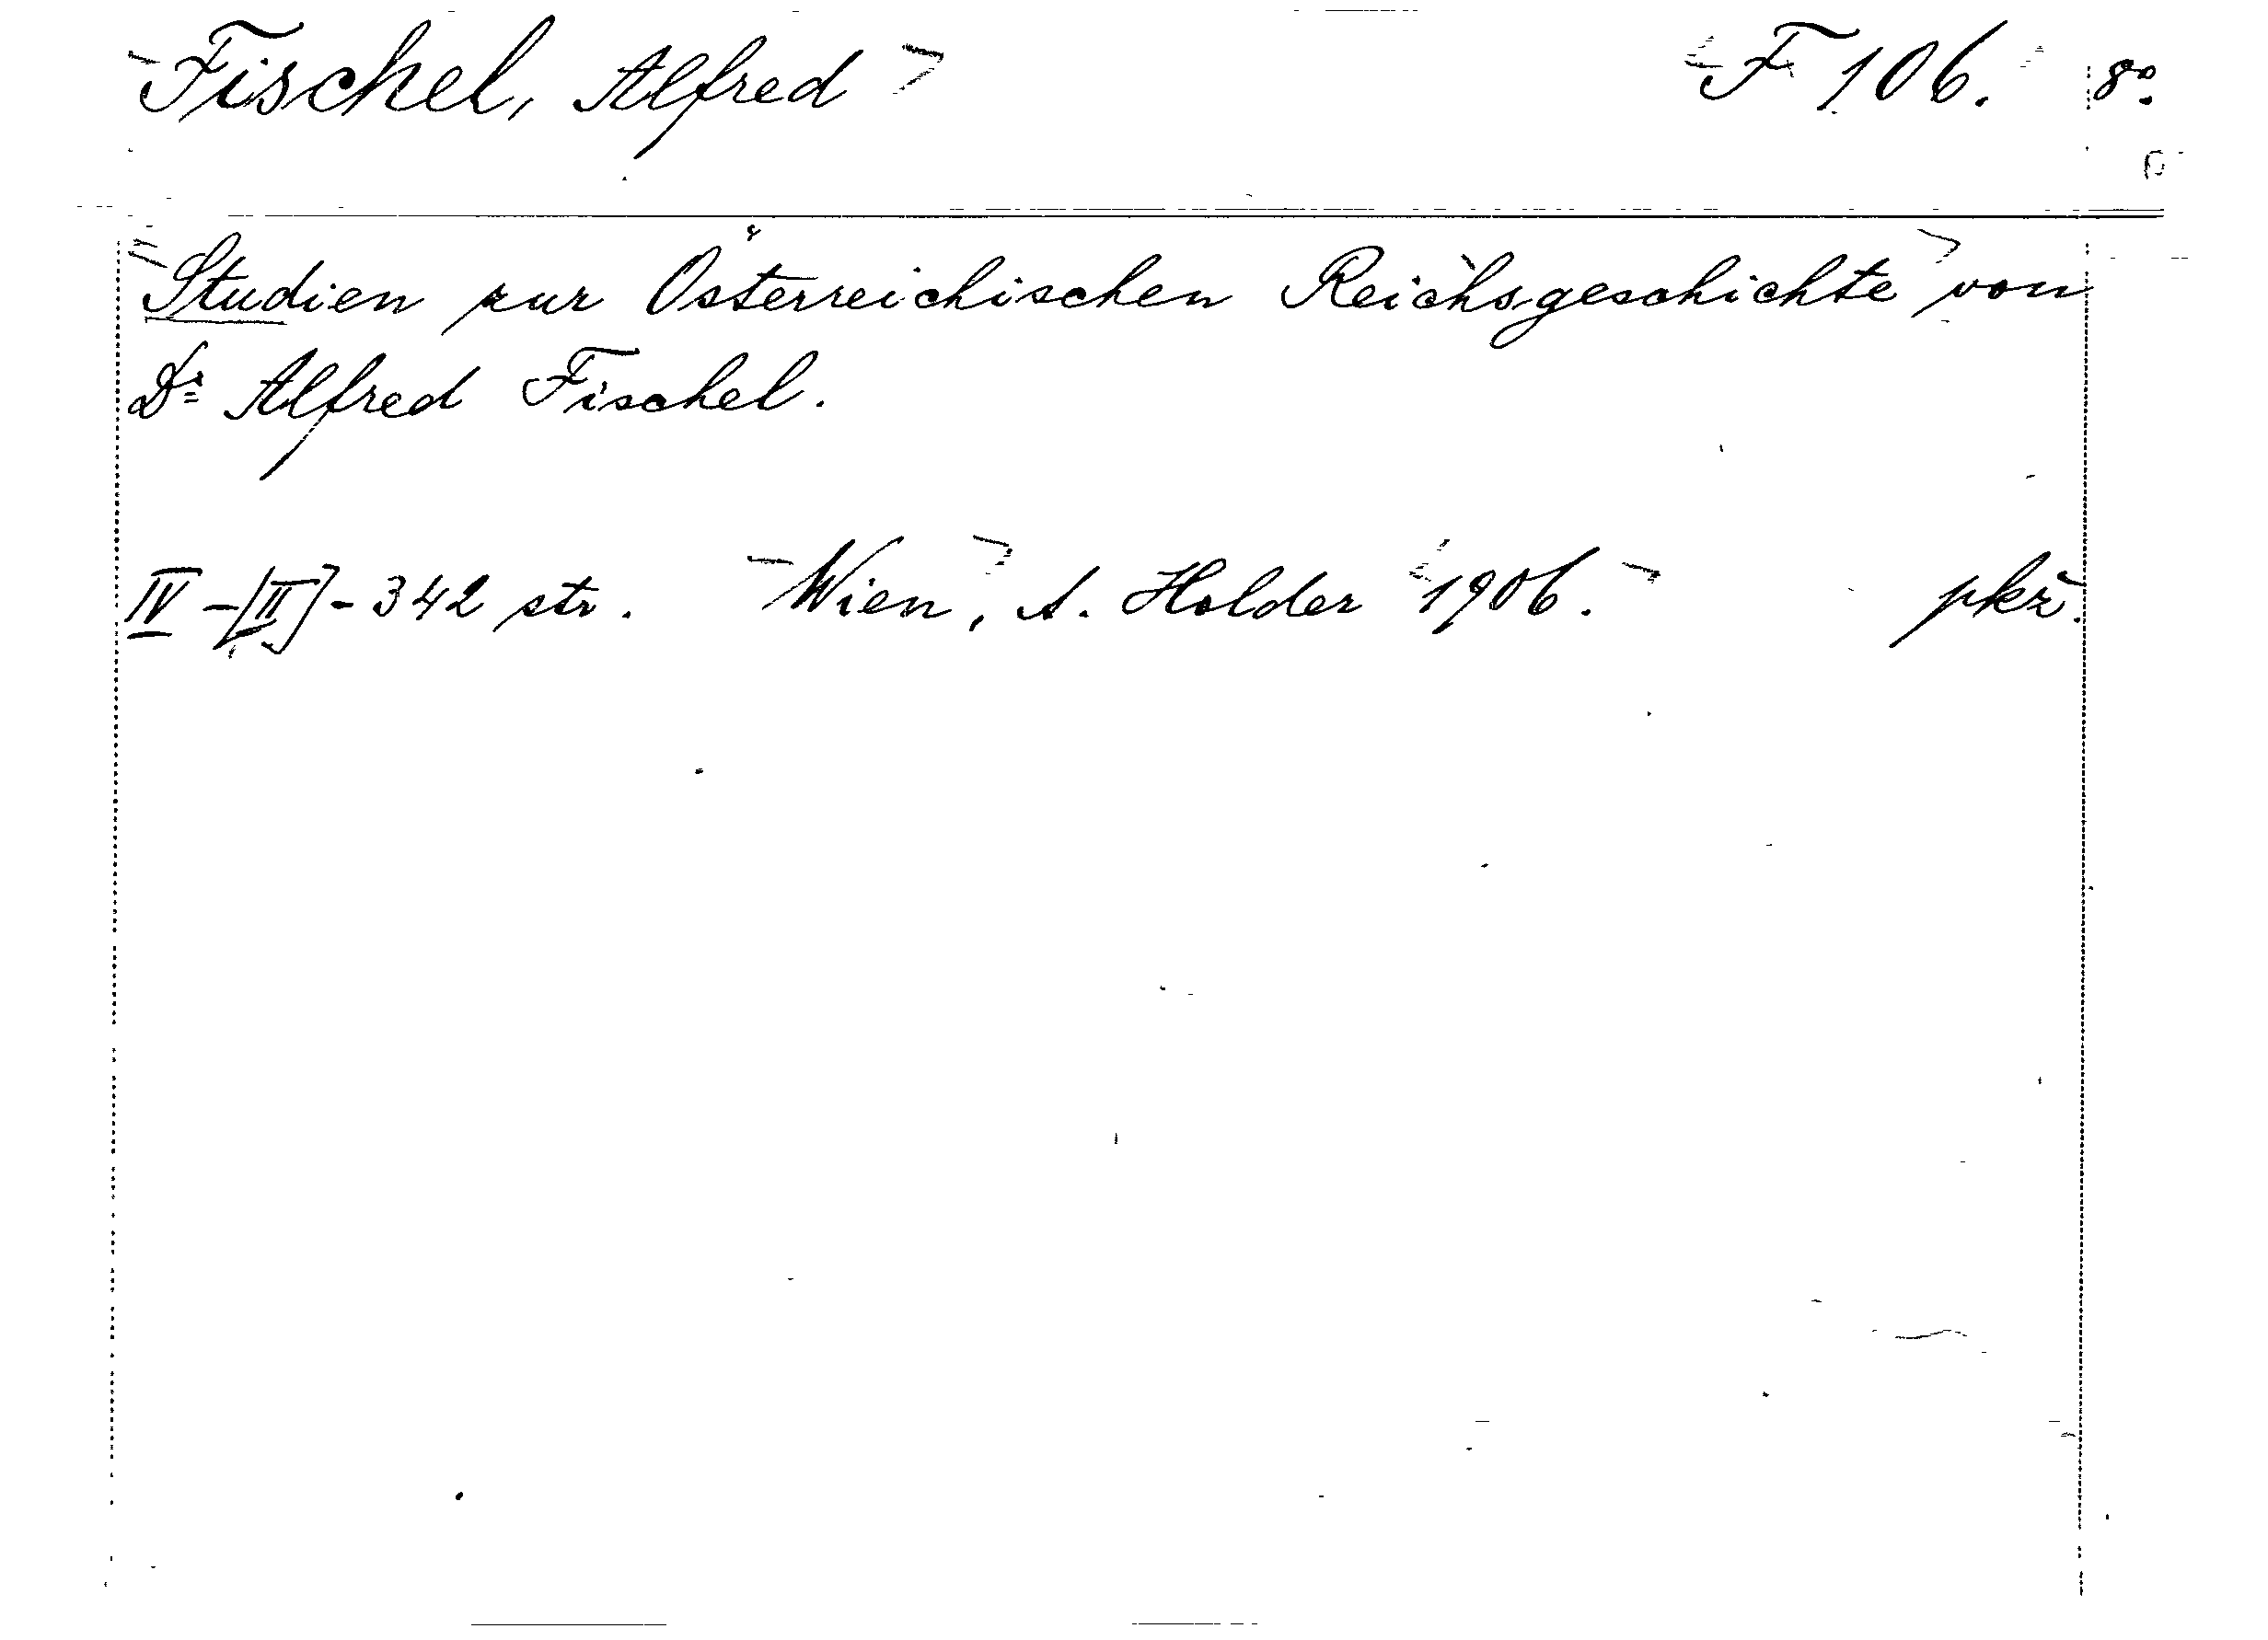 Fischel, Alfred F 106. 8°.
Studien zur Österreichischen Reichsgeschichte von
Dr Alfred Fischel.
IV-[II]-342 str. Wien, A. Holder 1906. pkř.